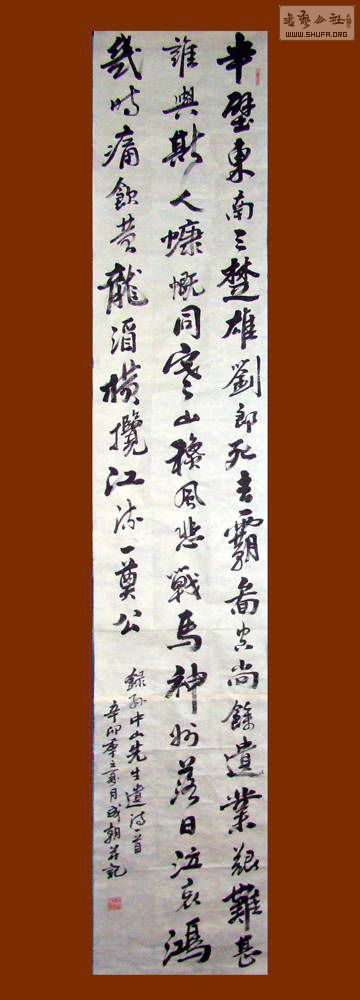 書藝公社
WWW.SHUFA.ORG
半壁東南三楚雄劉郎死去霸圖空尚餘遺業艱難甚
誰與斯人慷慨同塞上穐風悲戰馬神州落日泣哀鴻
幾時痛飲黄龍酒橫攬江流一奠公
錄孫中山先生遺詩一首
辛卯季夏月成朝并記